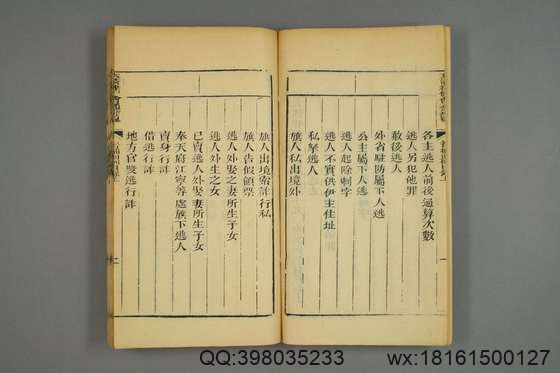 各主逃人前後通算次數
逃人另犯他罪
赦後逃人
外省駐防屬下人逃
公主屬下人逃
逃人起除刺字
逃人不實供伊主住址
私拏逃人
旗人私出境外
旗人出境索詐行私
旗人告假領票
逃人外娶之妻所生子女
逃人外生之女
已賣逃人外娶妻所生子女
奉天府江寧等處旗下逃人
賣身行詐
借逃行詐
地方官獲逃行詐
QQ:398035233
wx:18161500127